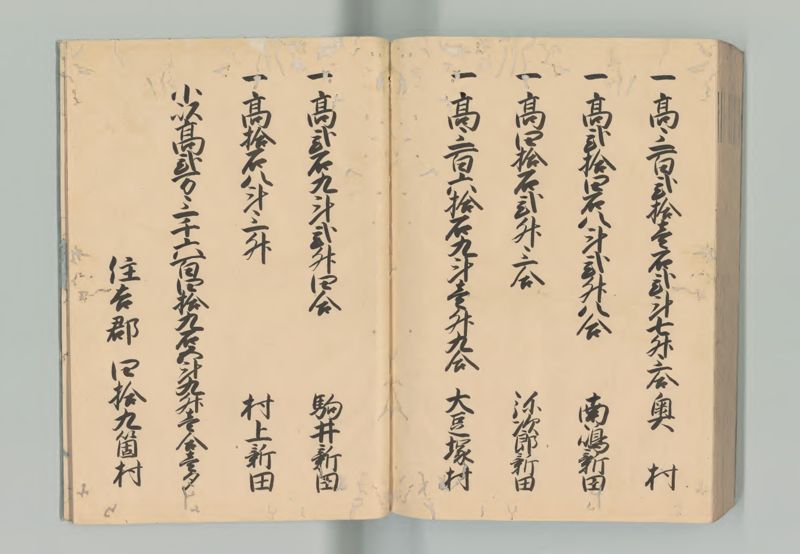 一 高三百弐拾壱石弐斗七升三合 奥村
一 高弐拾四石八斗弐升八合 南嶋新田
一 高四拾石弐升三合 弥次郎新田
一 高三百六拾石九斗壱升九合 大豆塚村
一 高弐石九斗弐升四合 駒井新田
一 高拾石八斗三升 村上新田
小以高弐万三千六百四拾九石六斗九升壱合壱夕
住吉郡 四拾九箇村